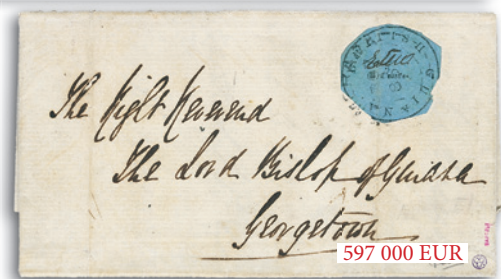 BRITISH GUIANA
The Right Reverend
The Lord Bishop of Guiana
Georgetown
597 000 EUR